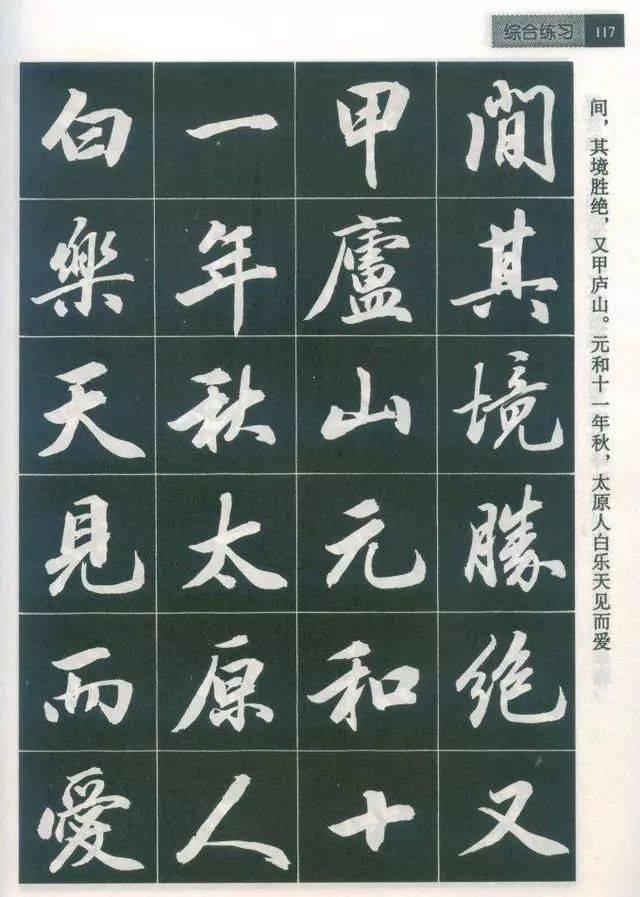 综合练习 117
間其境勝绝又
甲廬山元和十
一年秋太原人
白樂天見而愛
间，其境胜绝，又甲庐山。元和十一年秋，太原人白乐天见而爱